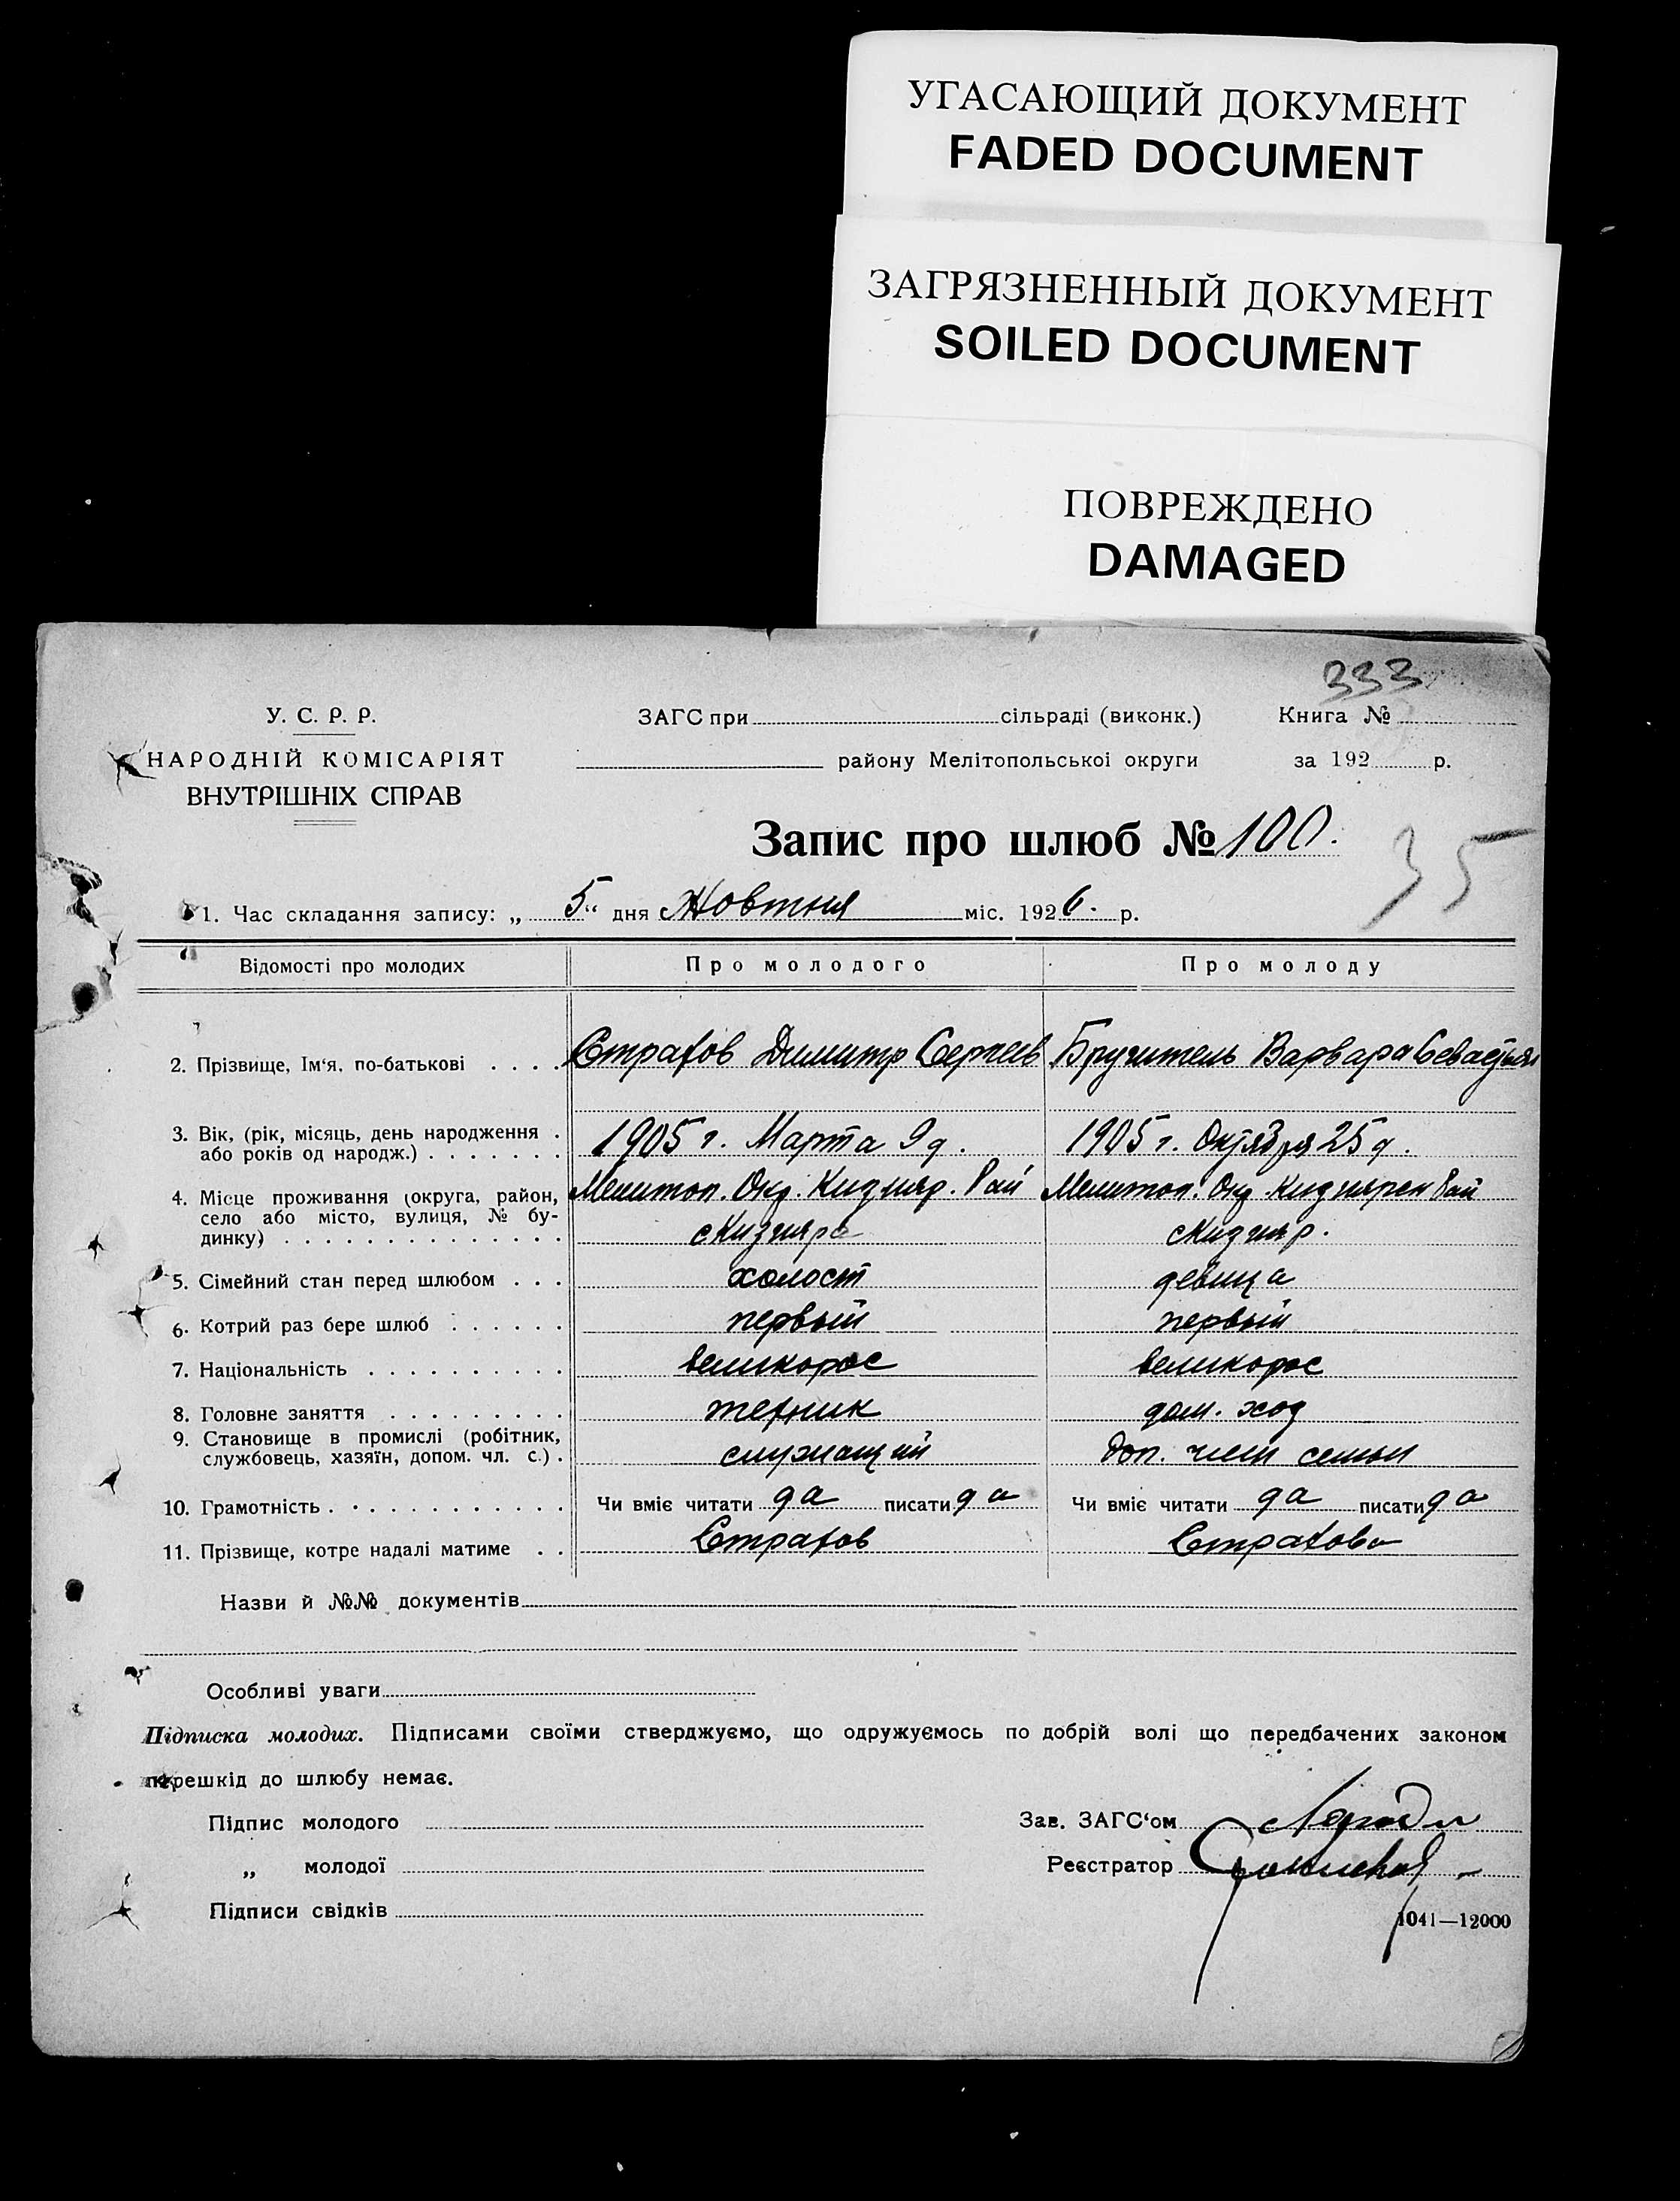 УГАСАЮЩИЙ ДОКУМЕНТ
FADED DOCUMENT
ЗАГРЯЗНЕННЫЙ ДОКУМЕНТ
SOILED DOCUMENT
ПОВРЕЖДЕНО
DAMAGED
333
У. С. Р. Р.
НАРОДНІЙ КОМІСАРІЯТ
ВНУТРІШНІХ СПРАВ
ЗАГС при сільраді (виконк.)
району Мелітопольської округи
Книга №
за 192 р.
Запис про шлюб № 100.
35
1. Час складання запису: „ 5 “ дня Жовтня міс. 1926. р.
Відомості про молодих Про молодого Про молоду
2. Прізвище, Ім‘я, по-батькові Страхов Димитр Сергеев Бручитель Варвара
3. Вік, (рік, місяць, день народження
або років од народж.) 1905 г. Марта 9 д. 1905 г. Октября 25 д.
4. Місце проживання (округа, район, Мелитоп. Окр. Кизияр. Рай Мелитоп. Окр. Рай
село або місто, вулиця, № бу-
динку) с Кизияре с Кизияр.
5. Сімейний стан перед шлюбом холост девица
6. Котрий раз бере шлюб первый первый
7. Національність великорос великорос
8. Головне заняття техник дом. хоз
9. Становище в промислі (робітник,
службовець, хазяїн, допом. чл. с.) служащий доп. член семьи
10. Грамотність Чи вміє читати да писати да Чи вміє читати да писати да
11. Прізвище, котре надалі матиме Страхов Страхова
Назви й №№ документів
Особливі уваги
Підписка молодих. Підписами своїми стверджуємо, що одружуємось по добрій волі що передбачених законом
перешкід до шлюбу немає.
Підпис молодого
„ молодої
Підписи свідків
Зав. ЗАГС‘ом
Реєстратор
1041—12000